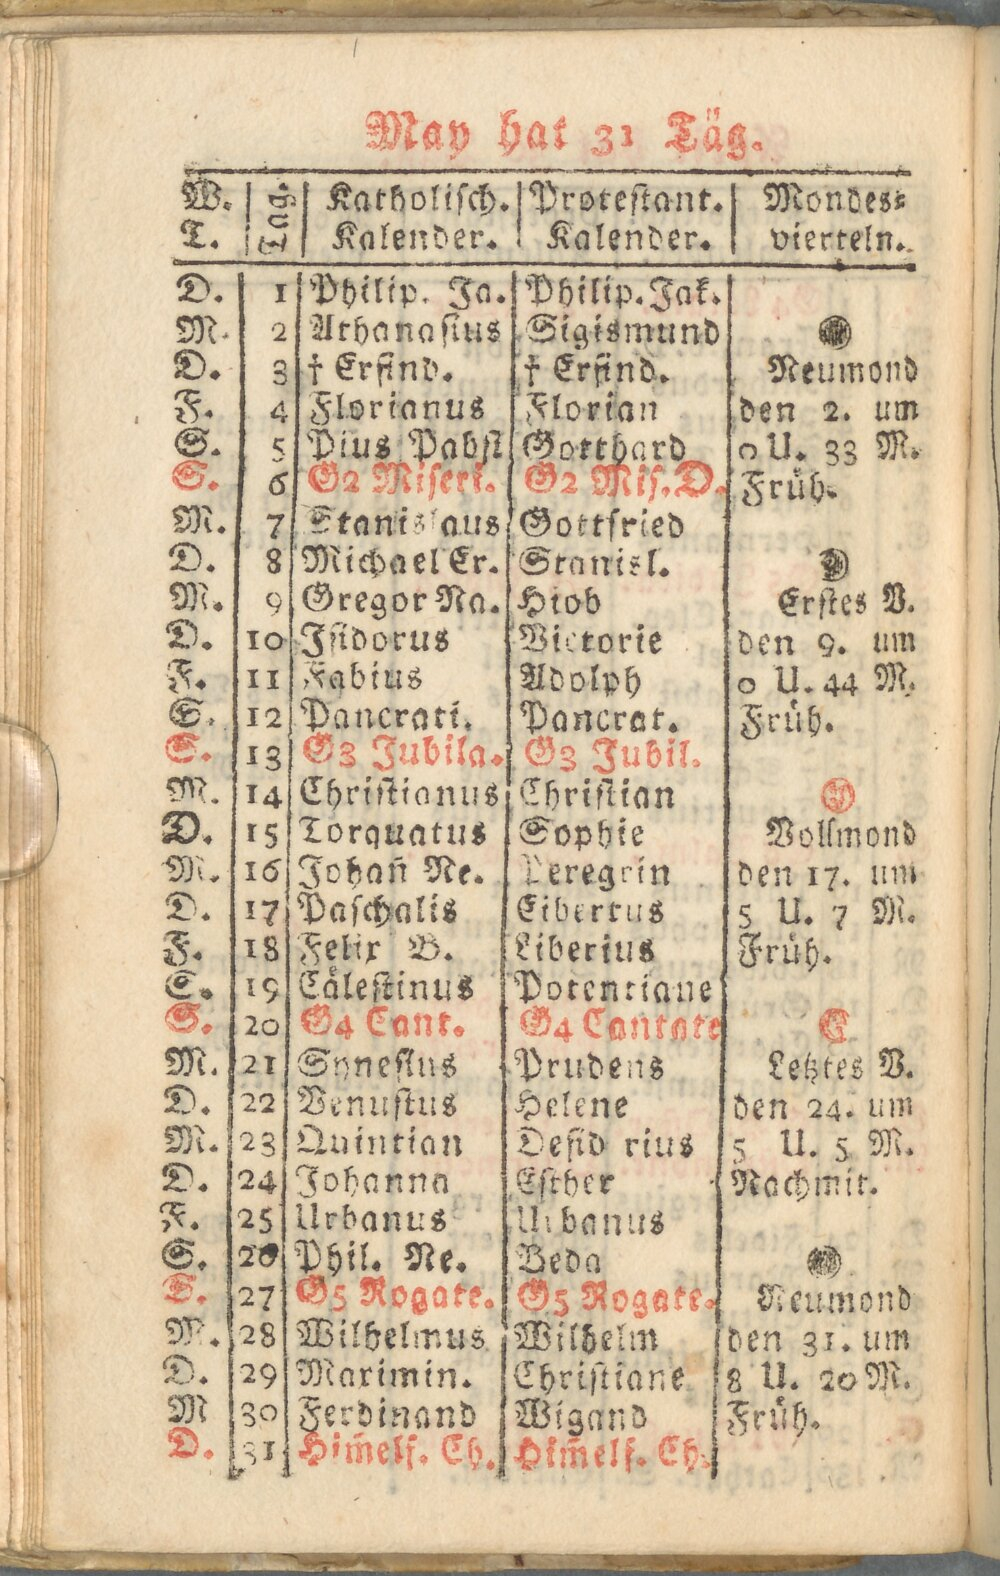 May hat 31 Täg.
W. Tag. Katholisch. Protestant. Mondes⸗
T. Kalender. Kalender. vierteln.
D. 1 Philip. Ja. Philip. Jak.
M. 2 Athanasius Sigismund
D. 3 † Erfind. † Erfind. Neumond
F. 4 Florianus Florian den 2. um
S. 5 Pius Pabst Gotthard 0 U. 33 M.
S. 6 G2 Miseri. G2 Mis. D. Früh.
M. 7 Stanislaus Gottfried
D. 8 Michael Er. Stanisl.
M. 9 Gregor Na. Hiob Erstes V.
D. 10 Isidorus Victorie den 9. um
F. 11 Fabius Adolph 0 U. 44 M.
S. 12 Pancrati. Pancrat. Früh.
S. 13 G3 Jubila. G3 Jubil.
M. 14 Christianus Christian
D. 15 Torquatus Sophie Vollmond
M. 16 Johan̄ Ne. Peregrin den 17. um
D. 17 Paschalis Eibertus 5 U. 7 M.
F. 18 Felix B. Liberius Früh.
S. 19 Cälestinus Potentiane
S. 20 G4 Cant. G4 Cantate
M. 21 Synesius Prudens Letztes V.
D. 22 Venustus Helene den 24. um
M. 23 Quintian Desid rius 5 U. 5 M.
D. 24 Johanna Esther Nachmit.
F. 25 Urbanus Urbanus
S. 26 Phil. Ne. Beda
S. 27 G5 Rogate. G5 Rogate. Neumond
M. 28 Wilhelmus Wilhelm den 31. um
D. 29 Maximin. Christiane 8 U. 20 M.
M 30 Ferdinand Wigand Früh.
D. 31 Him̄elf. Ch. Him̄elf. Ch.